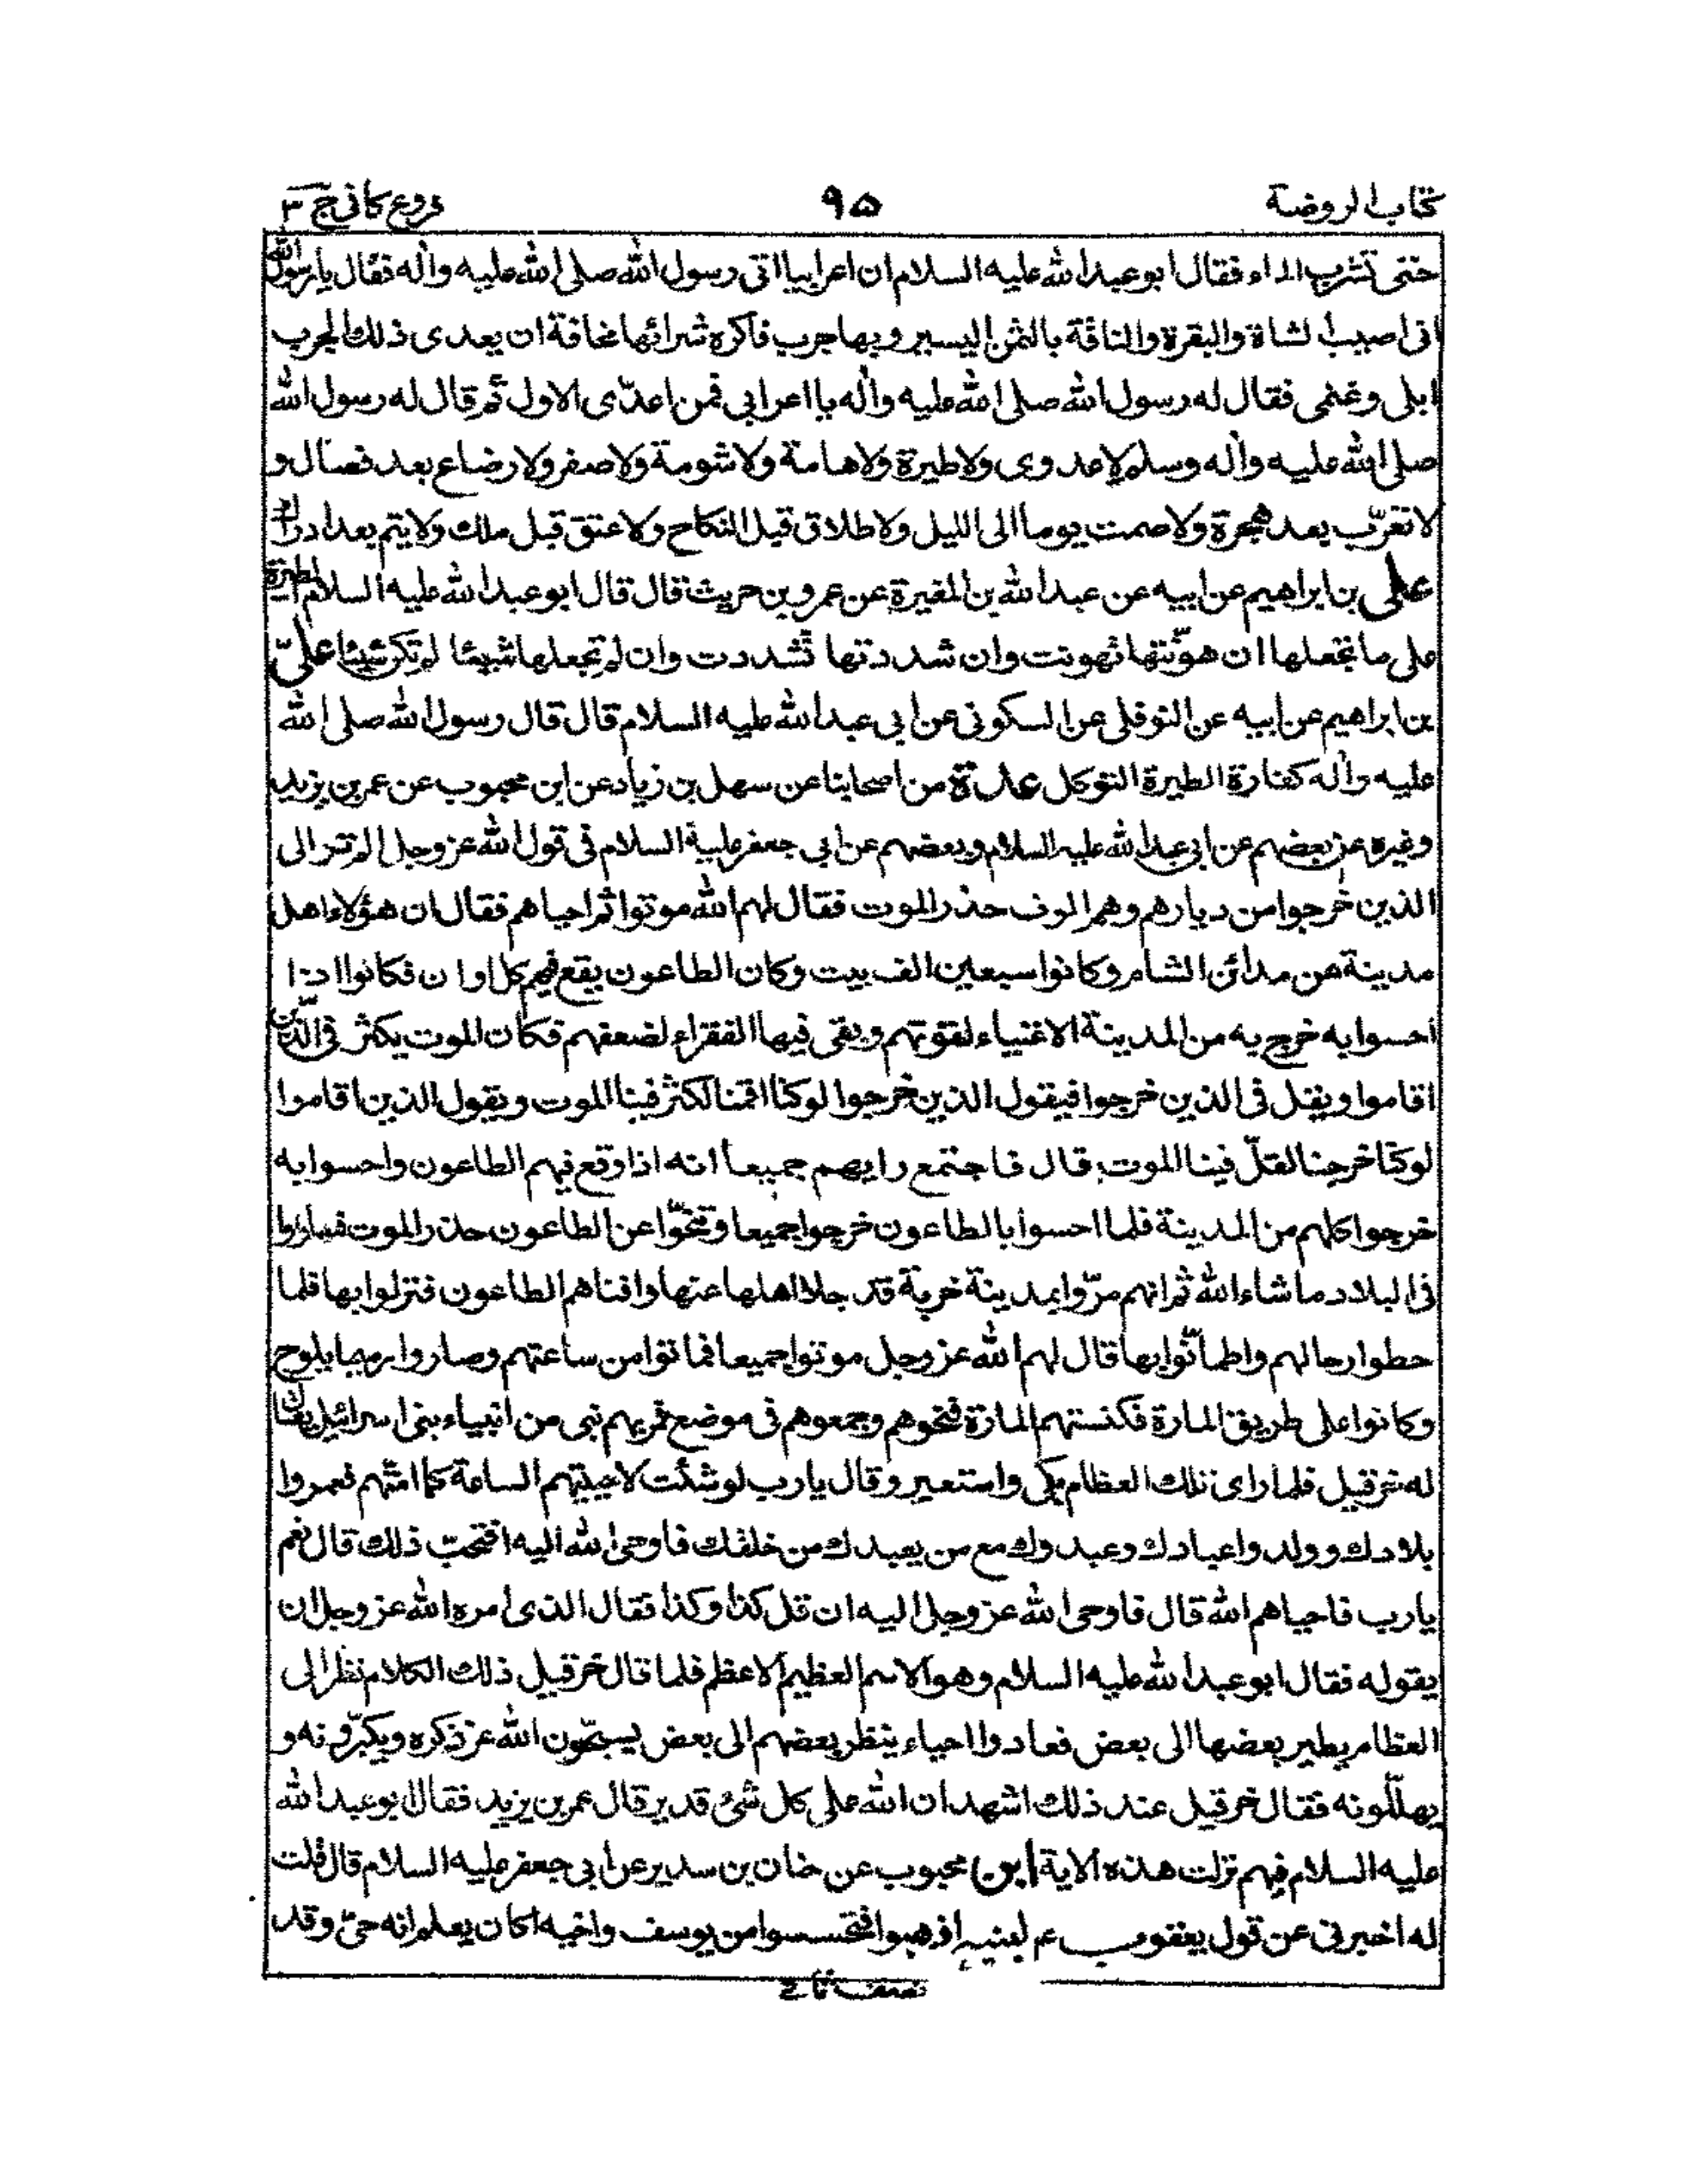 كتاب الروضة ٩٥ فروع كافى ج ٣
حتى تشرب الماء فقال ابو عبد الله عليه السلام ان اعرابيا اتى رسول الله صلى الله عليه واله فقال يا رسول الله
انى اصيب الشاة والبقرة والناقة بالثمن اليسير وبها جرب فاكره شرائها مخافة ان يعدى ذلك الجرب
ابلى وغنمى فقال له رسول الله صلى الله عليه واله يا اعرابى فمن اعدى الاول ثم قال له رسول الله
صلى الله عليه واله وسلم لا عدوى ولا طيرة ولا هامة ولا شومة ولا صفر ولا رضاع بعد فصال و
لا تعرّب بعد هجرة ولا صمت يوما الى الليل ولا طلاق قبل النكاح ولا عتق قبل ملك ولا يتم بعد ادراك
على بن ابراهيم عن ابيه عن عبد الله بن المغيرة عن عمرو بن حريث قال قال ابو عبد الله عليه السلام الطيرة
على ما تجعلها ان هوّنتها تهونت وان شددتها تشددت وان لم تجعلها شيئا لم تكن شيئا علىّ
بن ابراهيم عن ابيه عن النوفلى عن السكونى عن ابى عبد الله عليه السلام قال قال رسول الله صلى الله
عليه واله كفارة الطيرة التوكل عدة من اصحابنا عن سهل بن زياد عن ابن محبوب عن عمر بن يزيد
وغيره عن بعضهم عن ابى عبد الله عليه السلام وبعضهم عن ابى جعفر عليه السلام فى قول الله عز وجل الم تر الى
الذين خرجوا من ديارهم وهم الوف حذر الموت فقال لهم الله موتوا ثم احياهم فقال ان هؤلاء اهل
مدينة من مدائن الشام وكانوا سبعين الف بيت وكان الطاعون يقع فيهم كل اوان فكانوا اذا
احسوا به خرج به من المدينة الاغنياء لقوتهم وبقى فيها الفقراء لضعفهم فكان الموت يكثر فى الذين
اقاموا ويقل فى الذين خرجوا فيقول الذين خرجوا لو كنا اقمنا لكثر فينا الموت ويقول الذين اقاموا
لو كنا خرجنا لقلّ فينا الموت قال فاجتمع رايهم جميعا انه اذا وقع فيهم الطاعون واحسوا به
خرجوا كلهم من المدينة فلما احسوا بالطاعون خرجوا جميعا وتنحّوا عن الطاعون حذر الموت فساروا
فى البلاد ما شاء الله ثم انهم مرّوا بمدينة خربة قد جلا اهلها عنها وافناهم الطاعون فنزلوا بها فلما
حطوا رحالهم واطمأنّوا بها قال لهم الله عز وجل موتوا جميعا فماتوا من ساعتهم وصاروا رميما يلوح
وكانوا على طريق المارة فكنستهم المارة فنحوهم وجمعوهم فى موضع فمر بهم نبى من انبياء بنى اسرائيل يقال
له حزقيل فلما راى تلك العظام بكى واستعبر وقال يا رب لو شئت لاحييتهم الساعة كما امتّهم فعمروا
بلادك وولدوا عبادك وعبدوك مع من يعبدك من خلقك فاوحى الله اليه افتحبّ ذلك قال نعم
يا رب فاحياهم الله قال فاوحى الله عز وجل اليه ان قل كذا وكذا فقال الذى امره الله عز وجل ان
يقوله فقال ابو عبد الله عليه السلام وهو الاسم العظيم الاعظم فلما قال خرقيل ذلك الكلام نظر الى
العظام يطير بعضها الى بعض فعادوا احياء ينظر بعضهم الى بعض يسبحّون الله عز ذكره ويكبرّونه و
يهلّلونه فقال خرقيل عند ذلك اشهد ان الله على كل شئ قدير قال عمر بن يزيد فقال ابو عبد الله
عليه السلام فيهم نزلت هذه الاية ابن محبوب عن حنان بن سدير عن ابى جعفر عليه السلام قال قلت
له اخبرنى عن قول يعقوب ع لبنيه اذهبوا فتحسسوا من يوسف واخيه اكان يعلم انه حىّ وقد